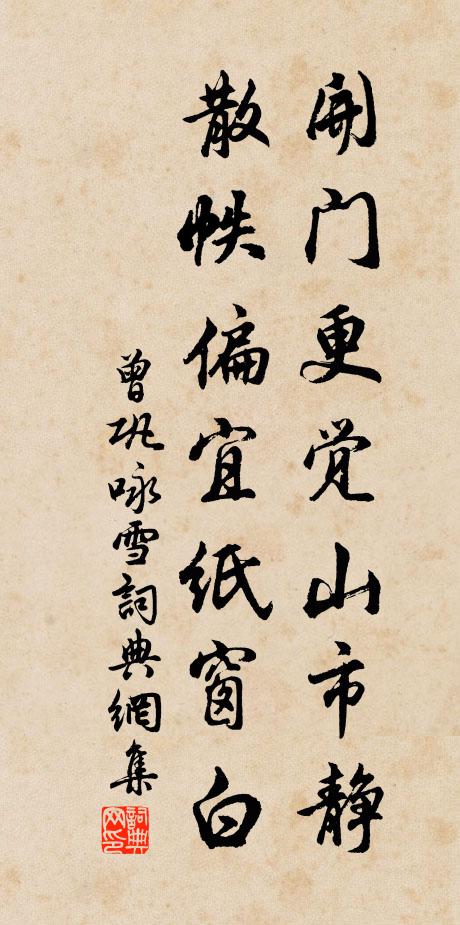 開门更觉山市静
散帙偏宜纸窗白
曾巩咏雪詞典網集
詞典网印